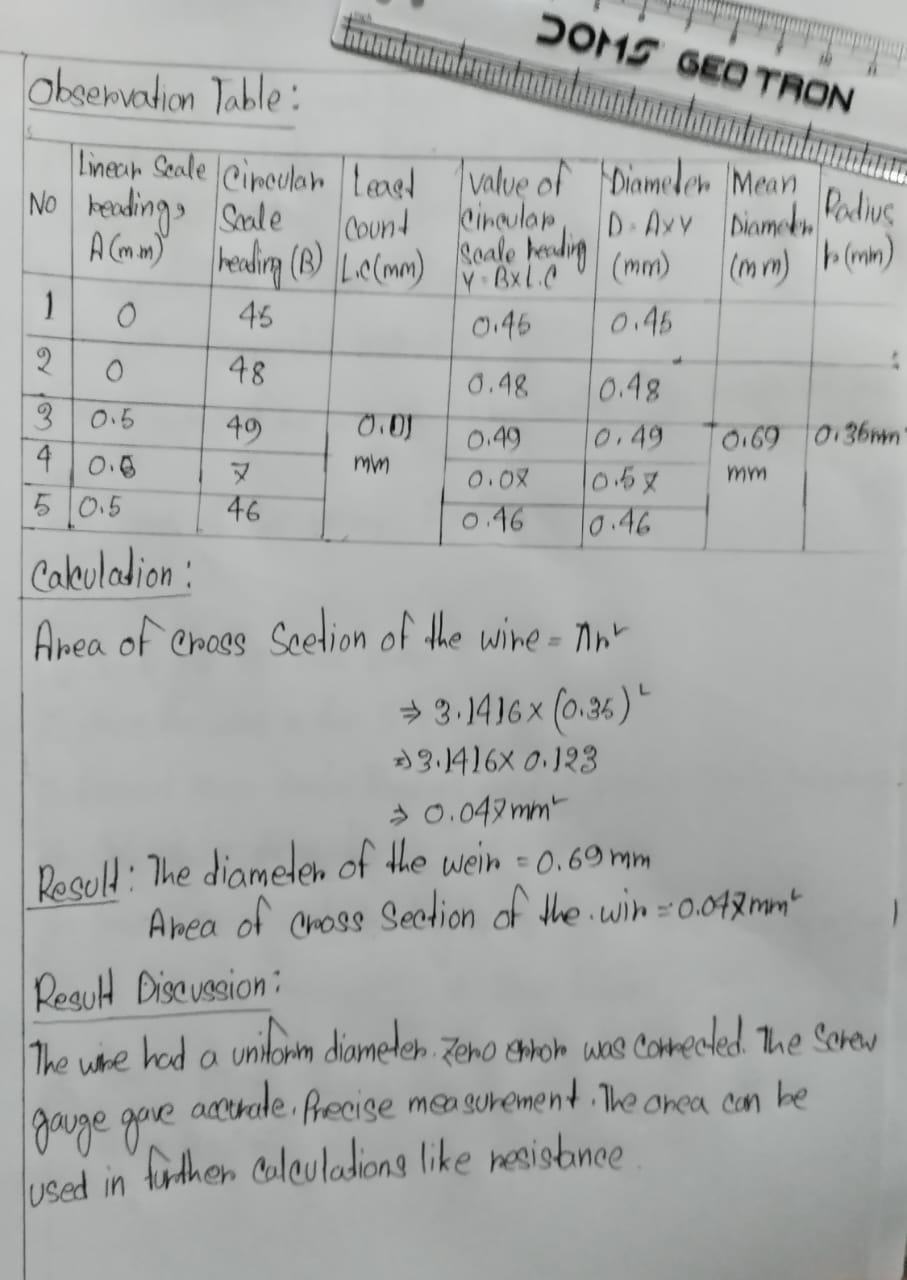 DOMS GEOTRON
Observation Table:
No | Linear Scale readings A(mm) | Circular Scale reading (B) | Least Count L.C(mm) | Value of Circular Scale reading Y=BxL.C | Diameter D=AxY (mm) | Mean Diameter (mm) | Radius r(mm)
1 | 0 | 45 | 0.45 | 0.45
2 | 0 | 48 | 0.48 | 0.48
3 | 0.5 | 49 | 0.01 mm | 0.49 | 0.49 | 0.69 mm | 0.36mm
4 | 0.5 | 7 | 0.07 | 0.57
5 | 0.5 | 46 | 0.46 | 0.46
Calculation:
Area of Cross Scetion of the wire = πr²
⇒ 3.1416x(0.35)²
⇒ 3.1416x 0.123
⇒ 0.047mm²
Result: The diameter of the weir = 0.69mm
Area of Cross Section of the.wir = 0.047mm²
Result Discussion:
The wire had a uniform diameter. Zero error was Corrected. The Screw
gauge gave accurate. Precise measurement. The area can be
used in further Calculations like resistance.